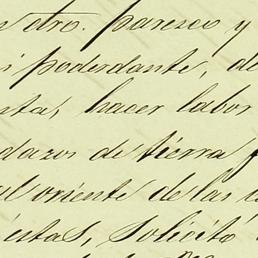 otro. parezco y
poderdante, de
hacer labor
dazos de tierra
al oriente de las
éstas, solicitó